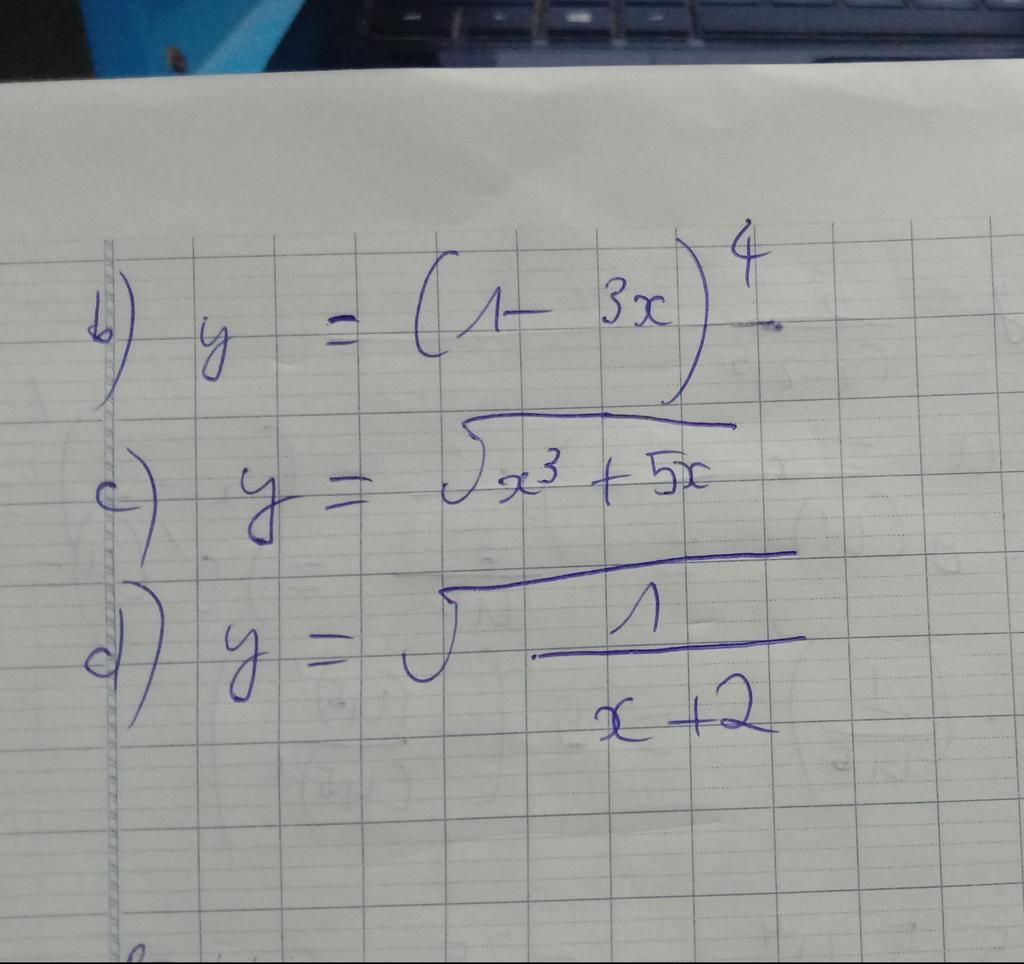 b) y = (1 - 3x)^4
c) y = √(x³ + 5x)
d) y = √(1/(x + 2))